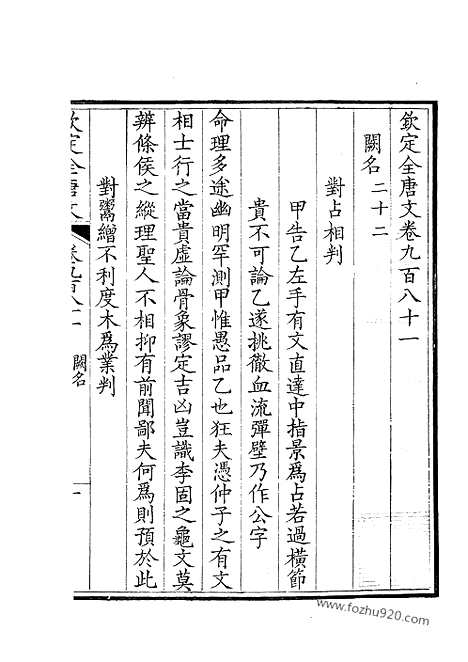 欽定全唐文卷九百八十一
闕名二十二
對占相判
甲告乙左手有文直達中指景為占若過橫節
貴不可論乙遂挑徹血流彈壁乃作公字
命理多途幽明罕測甲惟愚品乙也狂夫憑仲子之有文
相士行之當貴虛論骨象謬定吉凶豈識李固之龜文莫
辨條侯之縱理聖人不相抑有前聞鄙夫何為則預於此
對鬻繒不利度木為業判
欽定全唐文
卷九百八十一
闕名
一
www.fozhu920.com